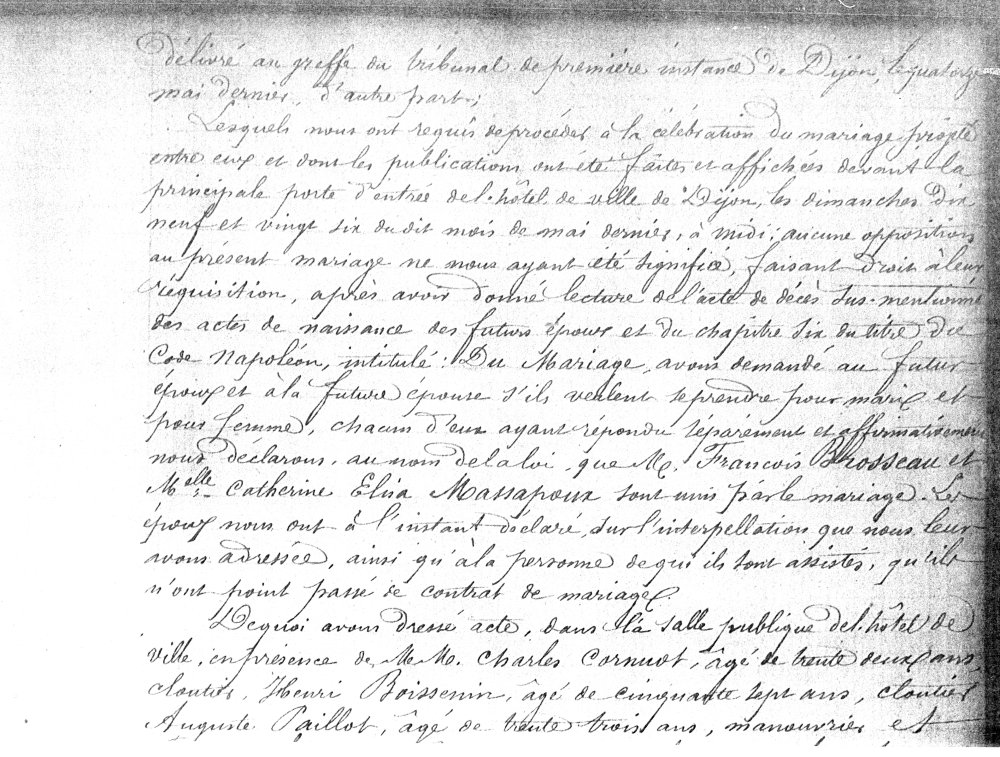 délivré au greffe du tribunal de première instance de Dijon, le quatorze
mai dernier, d'autre part;
Lesquels nous ont requis de procéder à la célébration du mariage projeté
entre eux et dont les publications ont été faites et affichées devant la
principale porte d'entrée de l'hôtel de ville de Dijon, les dimanches dix
neuf et vingt six du dit mois de mai dernier, à midi; aucune opposition
au présent mariage ne nous ayant été signifiée, faisant droit à leur
réquisition, après avoir donné lecture de l'acte de décès sus-mentionné
des actes de naissance des futurs époux et du chapitre six du titre du
Code Napoléon, intitulé: Du Mariage, avons demandé au futur
époux et à la future épouse s'ils veulent se prendre pour mari et
pour femme, chacun d'eux ayant répondu séparément et affirmativement
nous déclarons, au nom de la loi, que M. François Brosseau et
Melle Catherine Elisa Massapoux sont unis par le mariage. Les
époux nous ont à l'instant déclaré, sur l'interpellation que nous leur
avons adressée, ainsi qu'à la personne de qui ils sont assistés, qu'ils
n'ont point passé de contrat de mariage
De quoi avons dressé acte, dans la salle publique de l'hôtel de
ville, en présence de M.M. Charles Cornuot, âgé de trente deux ans,
cloutier, Henri Boissenin, âgé de cinquante sept ans, cloutier
Auguste Paillot, âgé de trente trois ans, manouvrier et